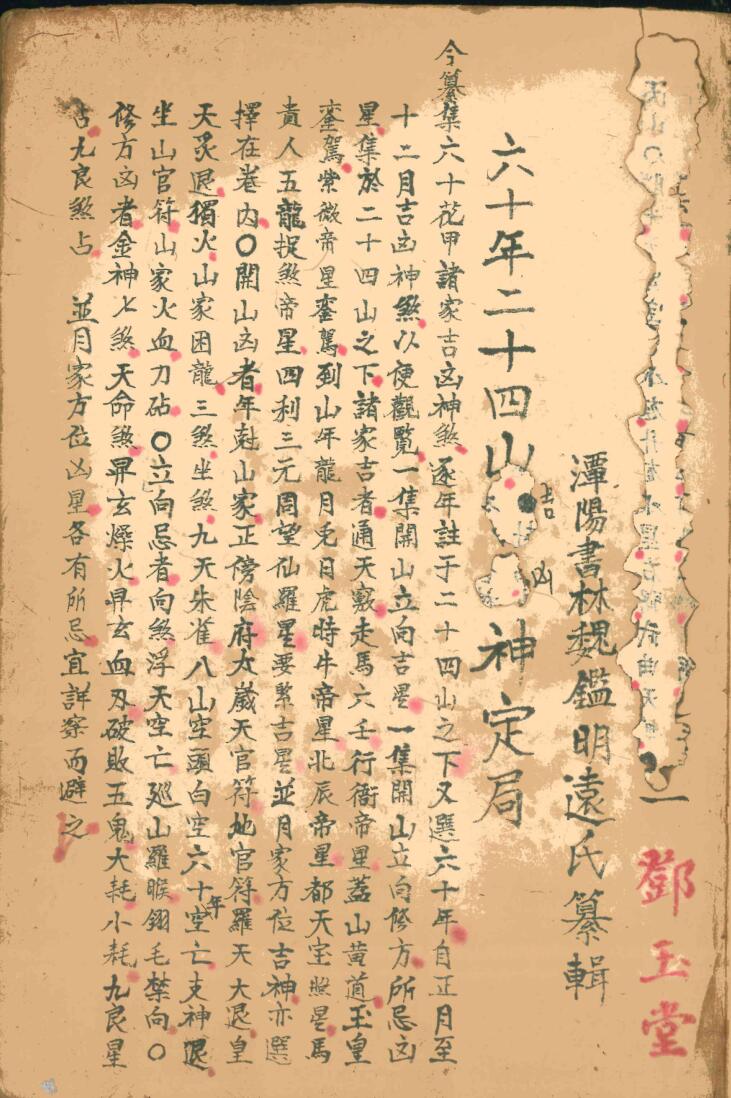 一
鄧玉堂
潭陽書林魏鑑明遠氏纂輯
六十年二十四山吉凶神定局
今纂集六十花甲諸家吉凶神煞逐年註于二十四山之下又選六十年自正月至
十二月吉凶神煞以便觀覽一集開山立向吉星一集開山立向修方所忌凶
星集於二十四山之下諸家吉者通天竅走馬六壬行衙帝星蓋山黄道玉皇
鑾駕紫微帝星鑾駕到山年龍月兎日虎時牛帝星北辰帝星都天宝照星馬
貴人五龍捉煞帝星四利三元周望仙羅星要緊吉星並月家方位吉神亦選
擇在卷内〇開山凶者年尅山家正傍陰府太歲天官符地官符羅天大退皇
天炙退獨火山家困龍三煞坐煞九天朱雀八山空頭白空六十年空亡支神退
坐山官符山家火血刀砧〇立向忌者向煞浮天空亡廵山羅睺翎毛禁向〇
修方凶者金神七煞天命煞昇玄燥火昇玄血刃破敗五鬼大耗小耗九良星
占九良煞占 並月家方位凶星各有所忌宜詳察而避之